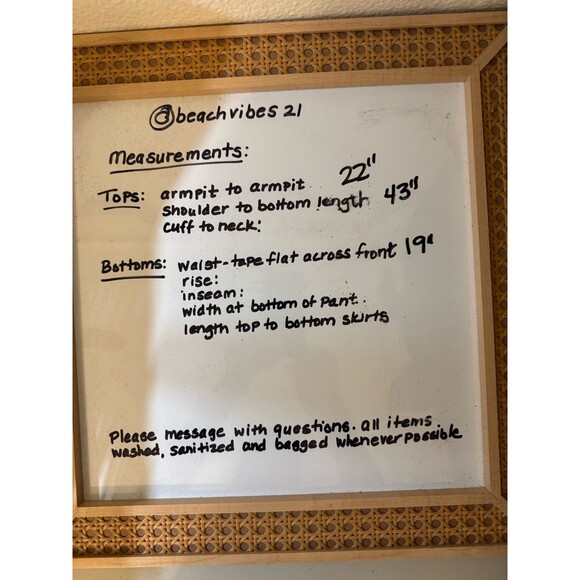 @beachvibes 21
Measurements:
Tops: armpit to armpit 22"
shoulder to bottom length 43"
cuff to neck:
Bottoms: waist-tape flat across front 19"
rise:
inseam:
width at bottom of pant.
length top to bottom skirts
Please message with questions. all items
washed, sanitized and bagged whenever possible